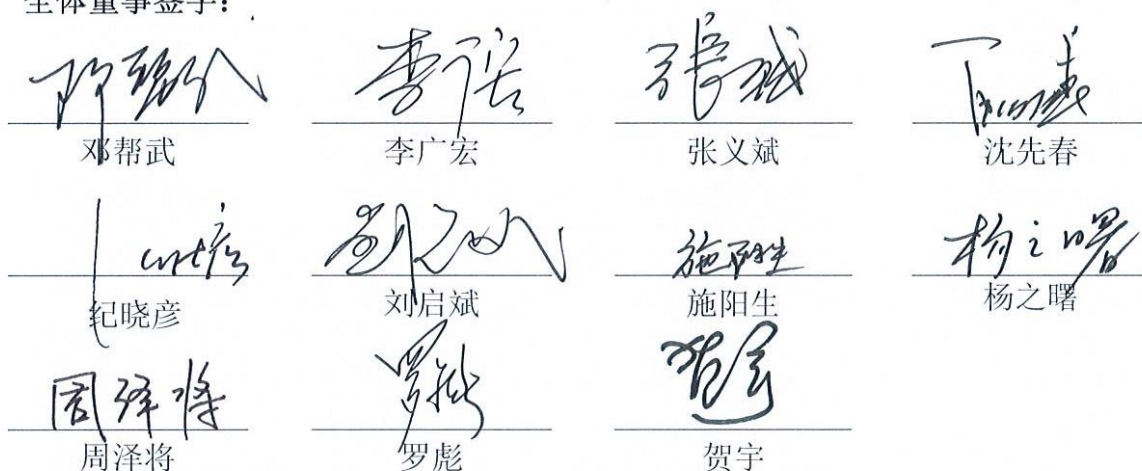 全体董事签字：
邓帮武 李广宏 张义斌 沈先春
纪晓彦 刘启斌 施阳生 杨之曙
施阳生 杨之曙
周泽将
周泽将 罗彪 贺宇